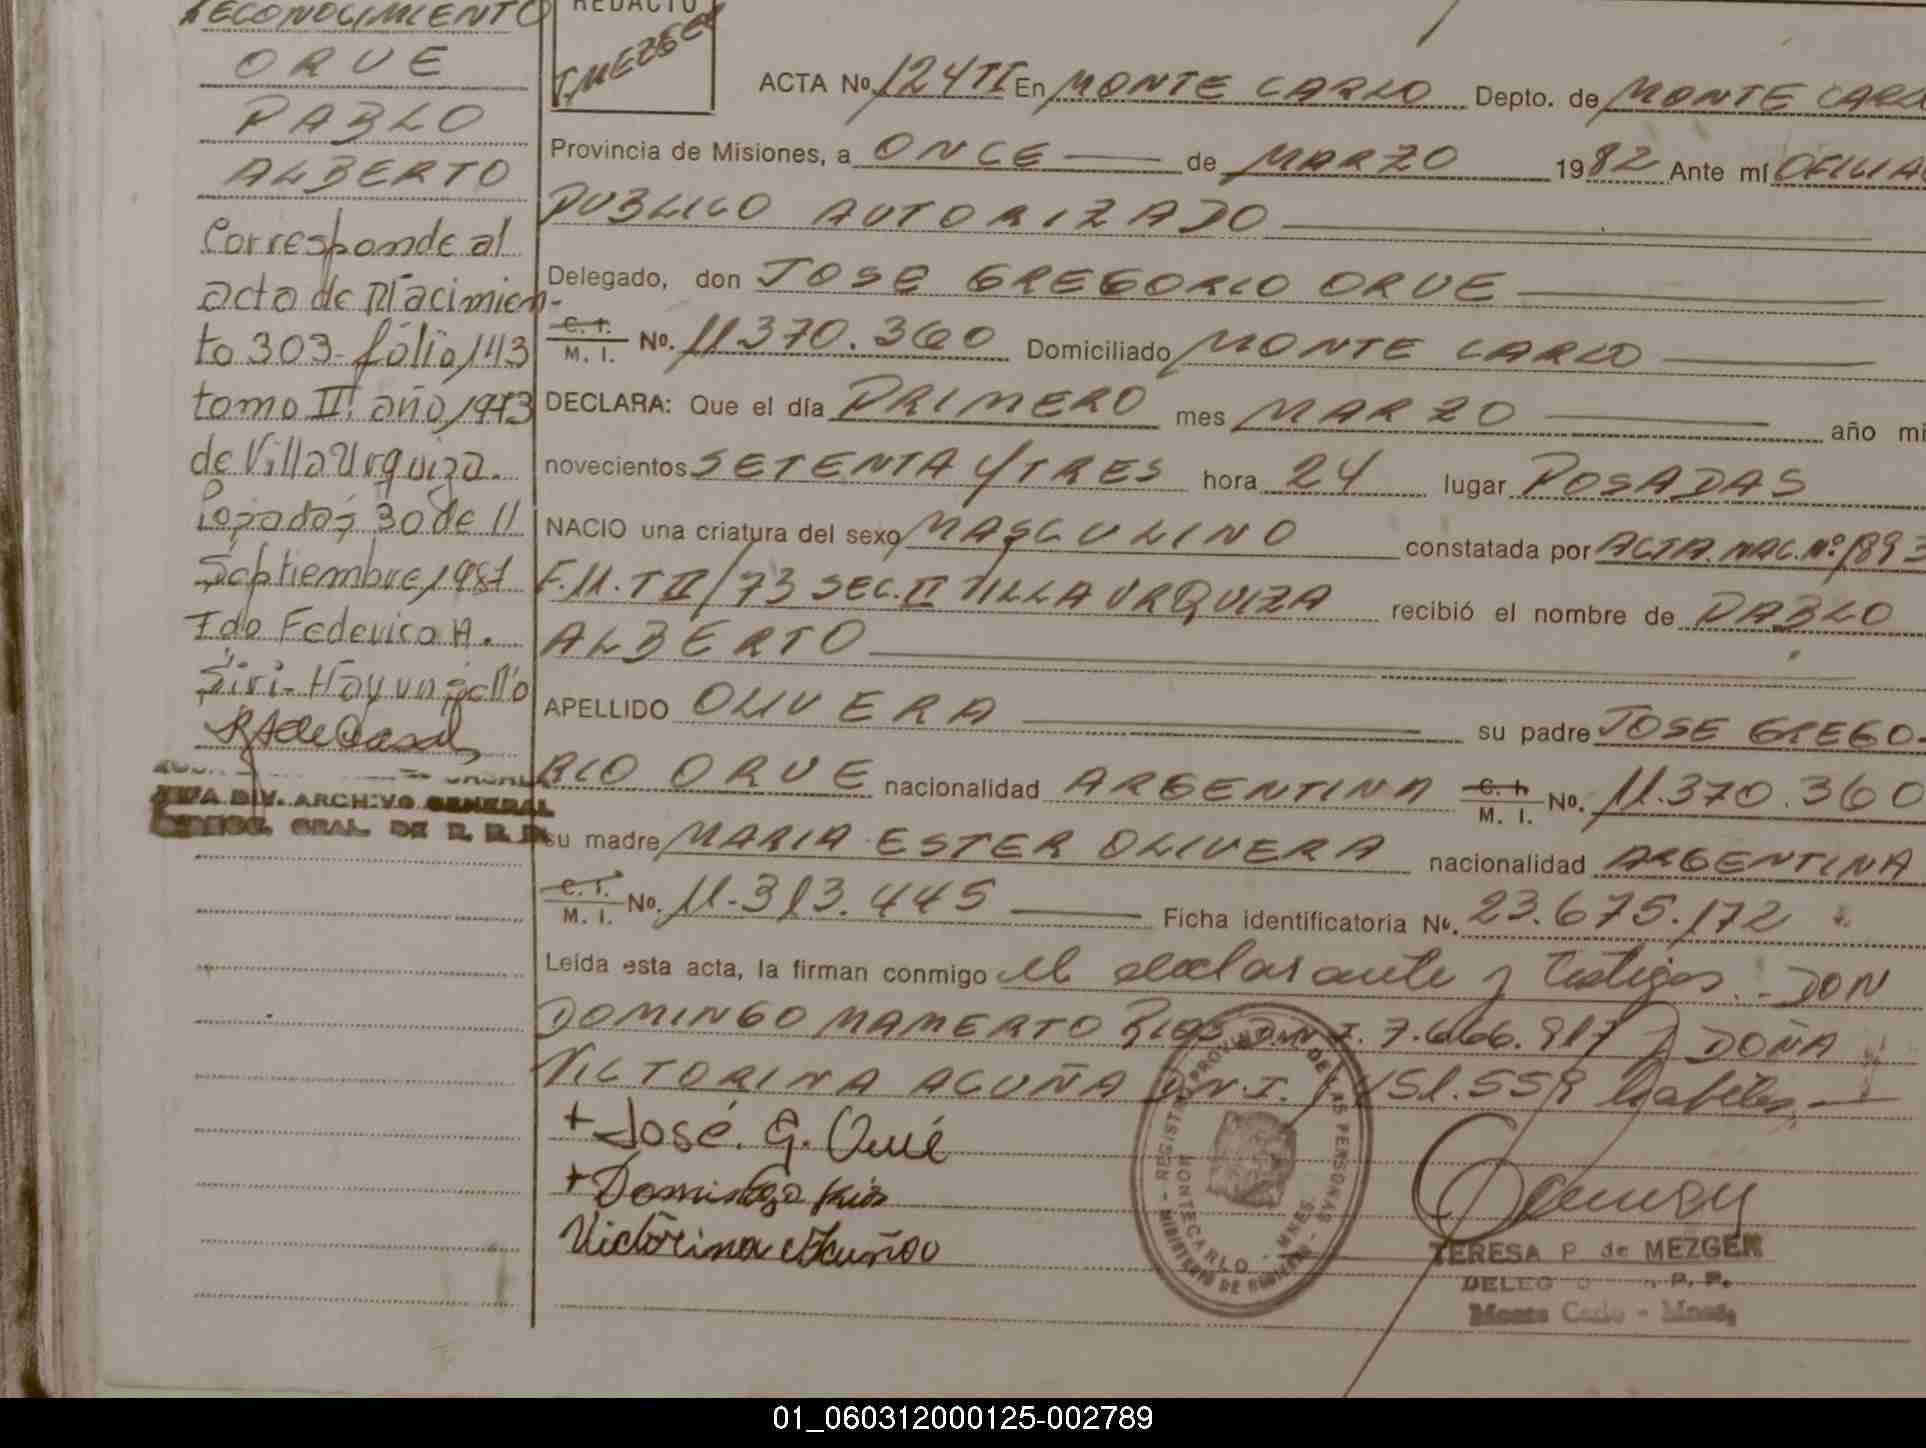 RECONOCIMIENTO
ORUE
PABLO
ALBERTO
Corresponde al
acta de Nacimien-
to 303 - fólio 143
tomo II año 1973
de Villa Urquiza.
Posadas 30 de
Septiembre 1987
Fdo Federico A.
Siri - Hay un sello
DIV. ARCHIVO GENERAL
GRAL. DE R. R.
REDACTO
T. MEZGER
ACTA No. 124 TI En MONTE CARLO Depto. de MONTE CARL
Provincia de Misiones, a ONCE de MARZO 1982 Ante mí OFICIAL
PUBLICO AUTORIZADO
Delegado, don JOSE GREGORIO ORUE
C. I.
M. I. No. 11370.360 Domiciliado MONTE CARLO
DECLARA: Que el día PRIMERO mes MARZO año mi
novecientos SETENTA Y TRES hora 24 lugar POSADAS
NACIO una criatura del sexo MASCULINO constatada por ACTA. NAC. Nº 1893
F. 11. T II/73 SEC. II VILLA URQUIZA recibió el nombre de PABLO
ALBERTO
APELLIDO OLIVERA su padre JOSE GREGO-
RIO ORUE nacionalidad ARGENTINA C. I. M. I. No. 11.370.360
su madre MARIA ESTER OLIVERA nacionalidad ARGENTINA
C. I.
M. I. No. 11-313.445 Ficha identificatoria No. 23.675.172
Leída esta acta, la firman conmigo el declarante y testigos. - DON
DOMINGO MAMERTO RIOS D.N.I. 7.666.917 y DOÑA
VICTORINA ACUÑA D.N.I. 451.559 hábiles,
+ José. G. Orué
+ Domingo Rios
Victorina Acuña
REGISTRO PROVINCIAL DE LAS PERSONAS - MINISTERIO DE
MONTECARLO - MNES.
TERESA P. de MEZGER
DELEG R. P.
Monte Carlo - Mnes.
01_060312000125-002789